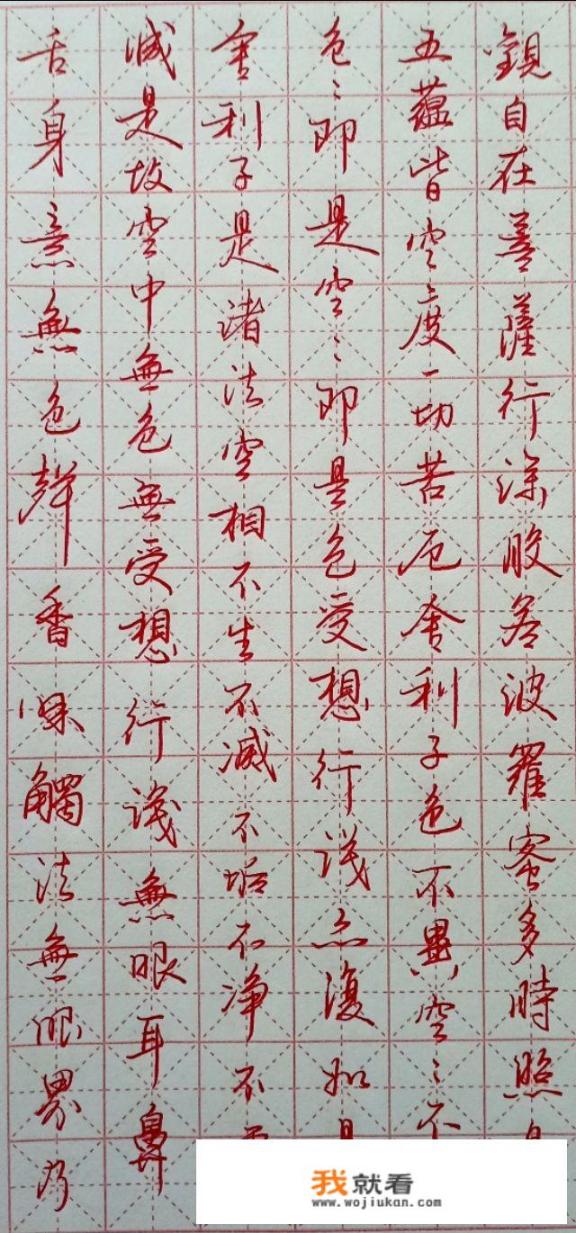 觀自在菩薩行深般若波羅蜜多時照
五蘊皆空度一切苦厄舍利子色不異空〻不
色〻即是空〻即是色受想行識亦復如
舍利子是諸法空相不生不滅不垢不净不
減是故空中無色無受想行識無眼耳鼻
舌身意無色聲香味觸法無眼界乃
我就看
www.wojiukan.com